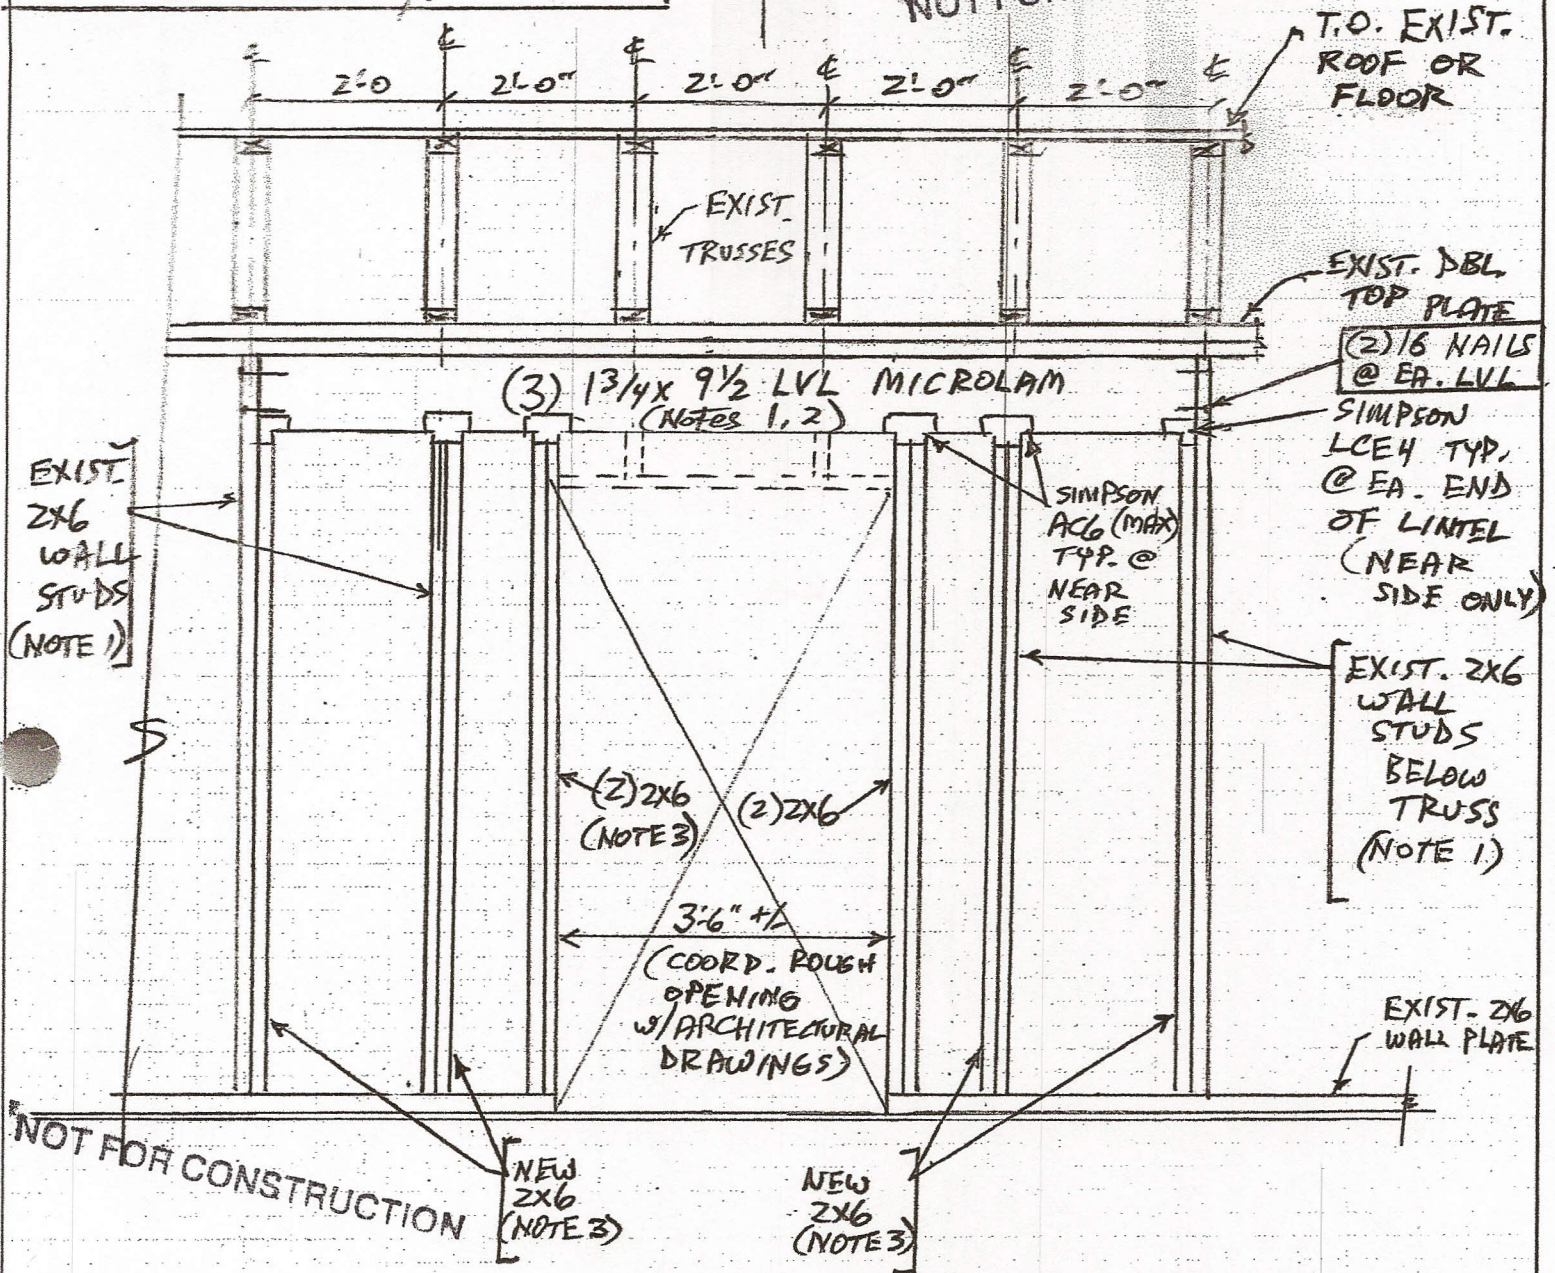 T.O. EXIST.
ROOF OR
FLOOR
℄ ℄ ℄ ℄ ℄ ℄
2'-0 2'-0" 2'-0" 2'-0" 2'-0"
EXIST.
TRUSSES
EXIST. DBL.
TOP PLATE
(2) 16 NAILS
@ EA. LVL
(3) 1 3/4 x 9 1/2 LVL MICROLAM
(Notes 1, 2)
SIMPSON
LCE4 TYP.
@ EA. END
OF LINTEL
(NEAR
SIDE ONLY)
EXIST.
2X6
WALL
STUDS
(NOTE 1)
SIMPSON
AC6 (MAX)
TYP. @
NEAR
SIDE
EXIST. 2X6
WALL
STUDS
BELOW
TRUSS
(NOTE 1)
(2) 2X6
(NOTE 3)
(2) 2X6
3'-6" +/-
(COORD. ROUGH
OPENING
W/ARCHITECTURAL
DRAWINGS)
EXIST. 2X6
WALL PLATE
NOT FOR CONSTRUCTION
NEW
2X6
(NOTE 3)
NEW
2X6
(NOTE 3)